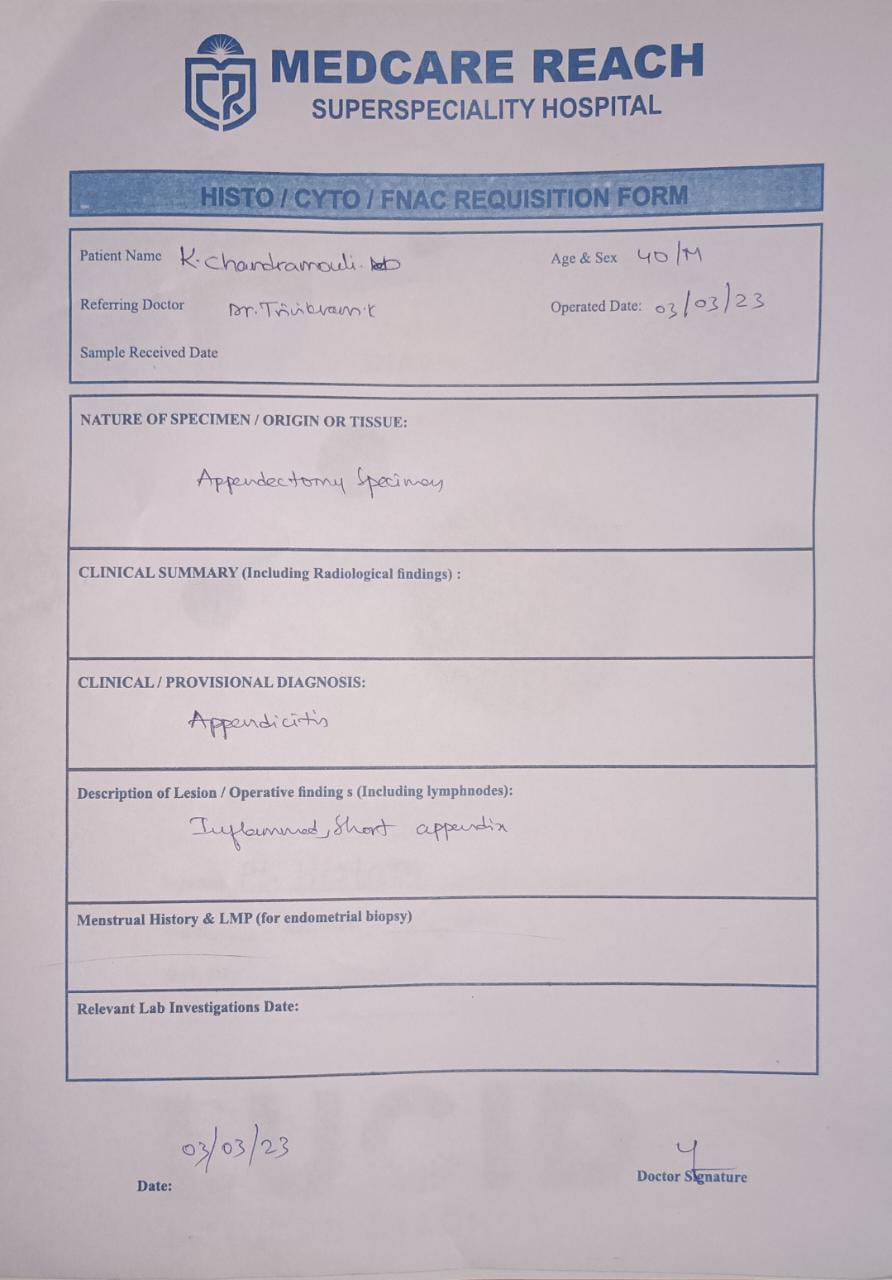 MEDCARE REACH
SUPERSPECIALITY HOSPITAL
HISTO / CYTO / FNAC REQUISITION FORM
Patient Name K. Chandramouli.
Age & Sex 40/M
Referring Doctor Dr.
Operated Date: 03/03/23
Sample Received Date
NATURE OF SPECIMEN / ORIGIN OR TISSUE:
Appendectomy Specimen
CLINICAL SUMMARY (Including Radiological findings) :
CLINICAL / PROVISIONAL DIAGNOSIS:
Appendicitis
Description of Lesion / Operative finding s (Including lymphnodes):
Inflammed, Short appendix
Menstrual History & LMP (for endometrial biopsy)
Relevant Lab Investigations Date:
03/03/23
Date:
Doctor Signature